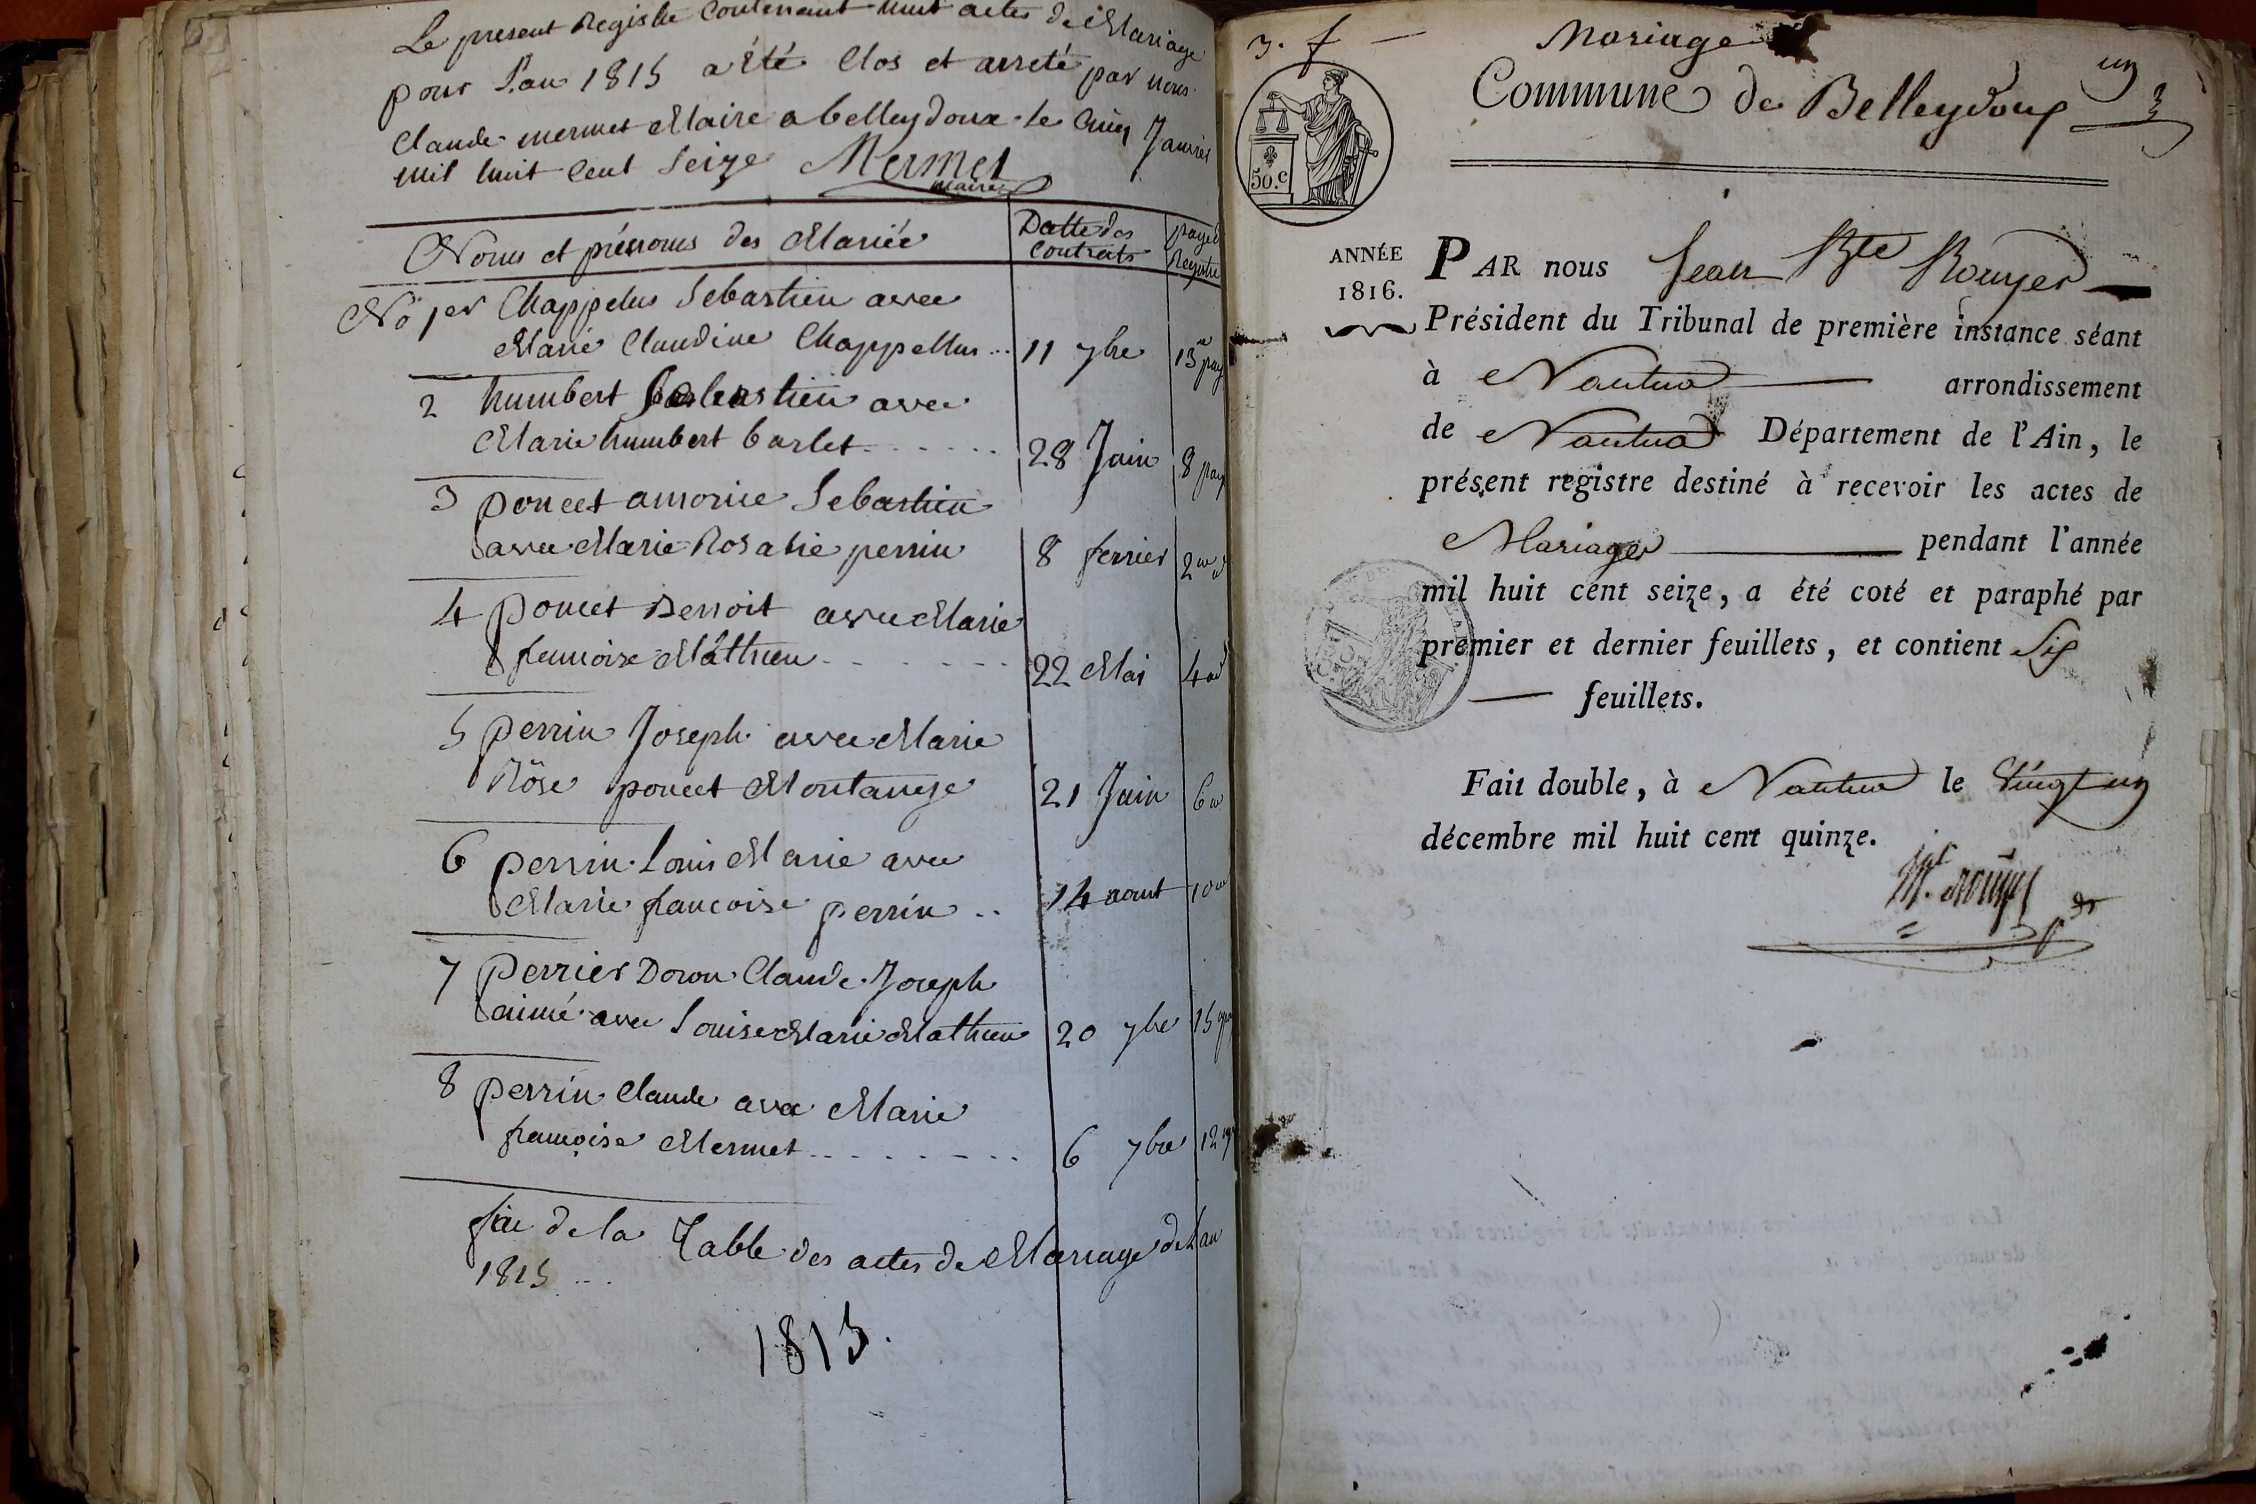 Le present Registre Contenant huit actes de Mariage
pour L'an 1815 a été Clos et arreté par nous
Claude mermet Maire a belleydoux le Cinq Janvier
mil huit Cent Seize Mermet
maire
Noms et prénoms des Mariés
Datte des Contrats
page du Registre
No 1er Chappelus Sebastien avec
Marie Claudine Chappellus .. 11 7bre 13me pag
2 humbert Sebastien avec
Marie humbert barlet . . . . . . 28 Juin 8 pag
3 poncet amorice Sebastien
avec Marie Rosalie perrin 8 fevrier 2
4 poncet Benoit avec Marie
francoise Mathieu . . . . . . . 22 Mai 4
5 perrin Joseph avec Marie
Rose poncet Montange 21 Juin 6
6 perrin Louis Marie avec
Marie francoise perrin .. 14 aout 10
7 perrier Doron Claude Joseph
aimé avec Louise Marie Mathieu 20 7bre 15
8 perrin Claude avec Marie
françoise Mermet . . . . . . . . 6 7bre 12
fin de la Table des actes de Mariage de Lan
1815 ...
1815.
3. f
Mariage
Commune de Belleydoux
un
50.c
ANNÉE
1816.
PAR nous Jean Bte Rouyer
Président du Tribunal de première instance séant
à Nantua arrondissement
de Nantua Département de l'Ain, le
présent registre destiné à recevoir les actes de
Mariages pendant l'année
mil huit cent seize, a été coté et paraphé par
premier et dernier feuillets, et contient Six
feuillets.
Fait double, à Nantua le Vingt un
décembre mil huit cent quinze.